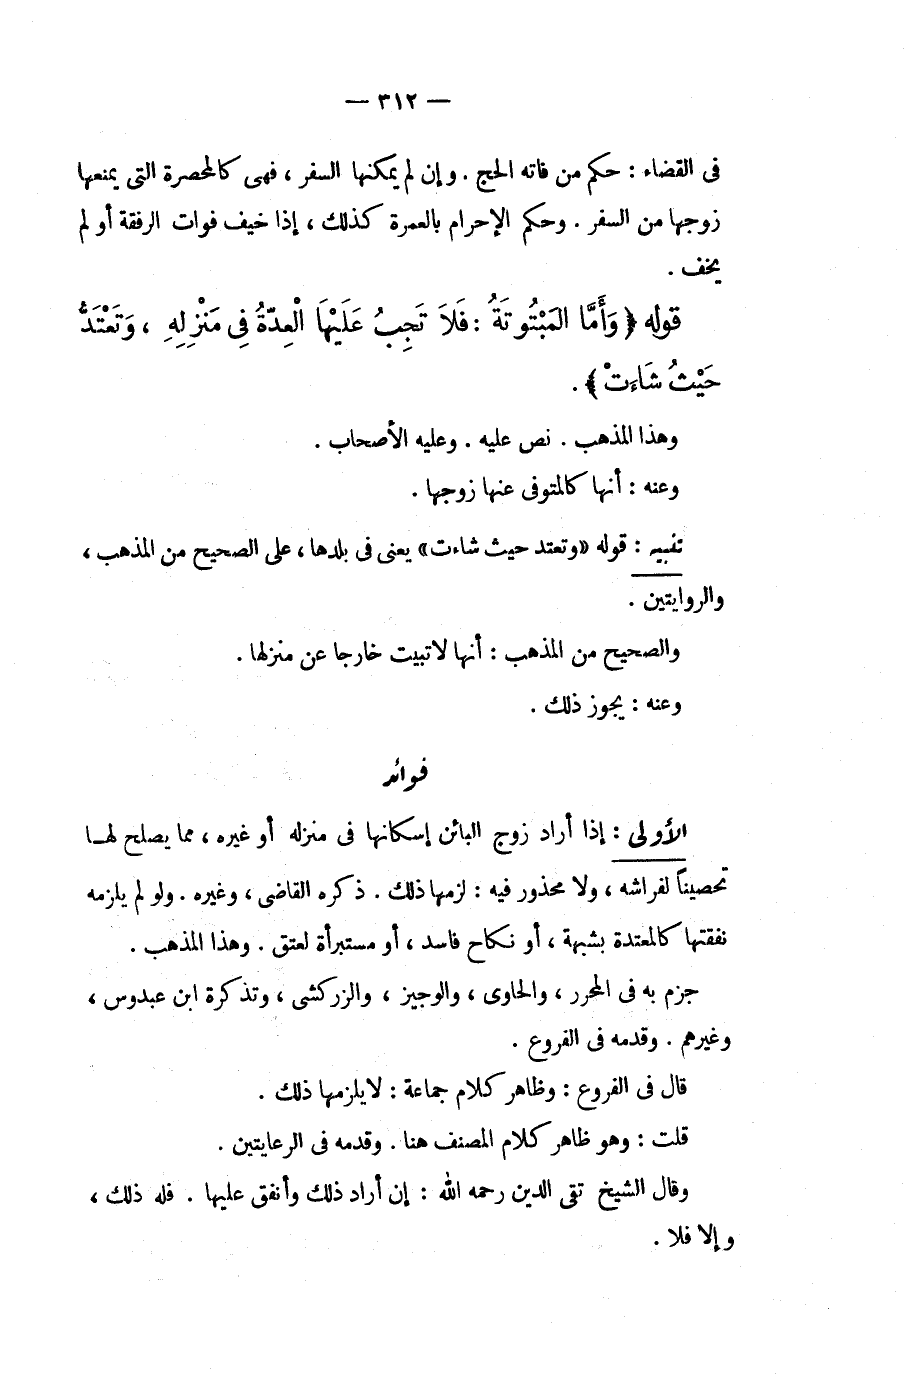 — ٣١٢ —
فى القضاء : حكم من فاته الحج . وإن لم يمكنها السفر ، فهى كالمحصرة التى يمنعها
زوجها من السفر . وحكم الإحرام بالعمرة كذلك ، إذا خيف فوات الرفقة أو لم
يخف .
قوله ﴿ وَأَمَّا المَبْتُوتَةُ : فَلاَ تَجِبُ عَلَيْهَا الْعِدّةُ فِى مَنْزِلِهِ ، وَتَعْتَدُّ
حَيْثُ شَاءَتْ ﴾ .
وهذا المذهب . نص عليه . وعليه الأصحاب .
وعنه : أنها كالمتوفى عنها زوجها .
تنبيه : قوله «وتعتد حيث شاءت» يعنى فى بلدها ، على الصحيح من المذهب ،
والروايتين .
والصحيح من المذهب : أنها لاتبيت خارجا عن منزلها .
وعنه : يجوز ذلك .
فوائد
الأولى : إذا أراد زوج البائن إسكانها فى منزله أو غيره ، مما يصلح لهـا
تحصيناً لفراشه ، ولا محذور فيه : لزمها ذلك . ذكره القاضى ، وغيره . ولو لم يلزمه
نفقتها كالمعتدة بشبهة ، أو نكاح فاسد ، أو مستبرأة لعتق . وهذا المذهب .
جزم به فى المحرر ، والحاوى ، والوجيز ، والزركشى ، وتذكرة ابن عبدوس ،
وغيرهم . وقدمه فى الفروع .
قال فى الفروع : وظاهر كلام جماعة : لايلزمها ذلك .
قلت : وهو ظاهر كلام المصنف هنا . وقدمه فى الرعايتين .
وقال الشيخ تقى الدين رحمه الله : إن أراد ذلك وأنفق عليها . فله ذلك ،
وإلا فلا .